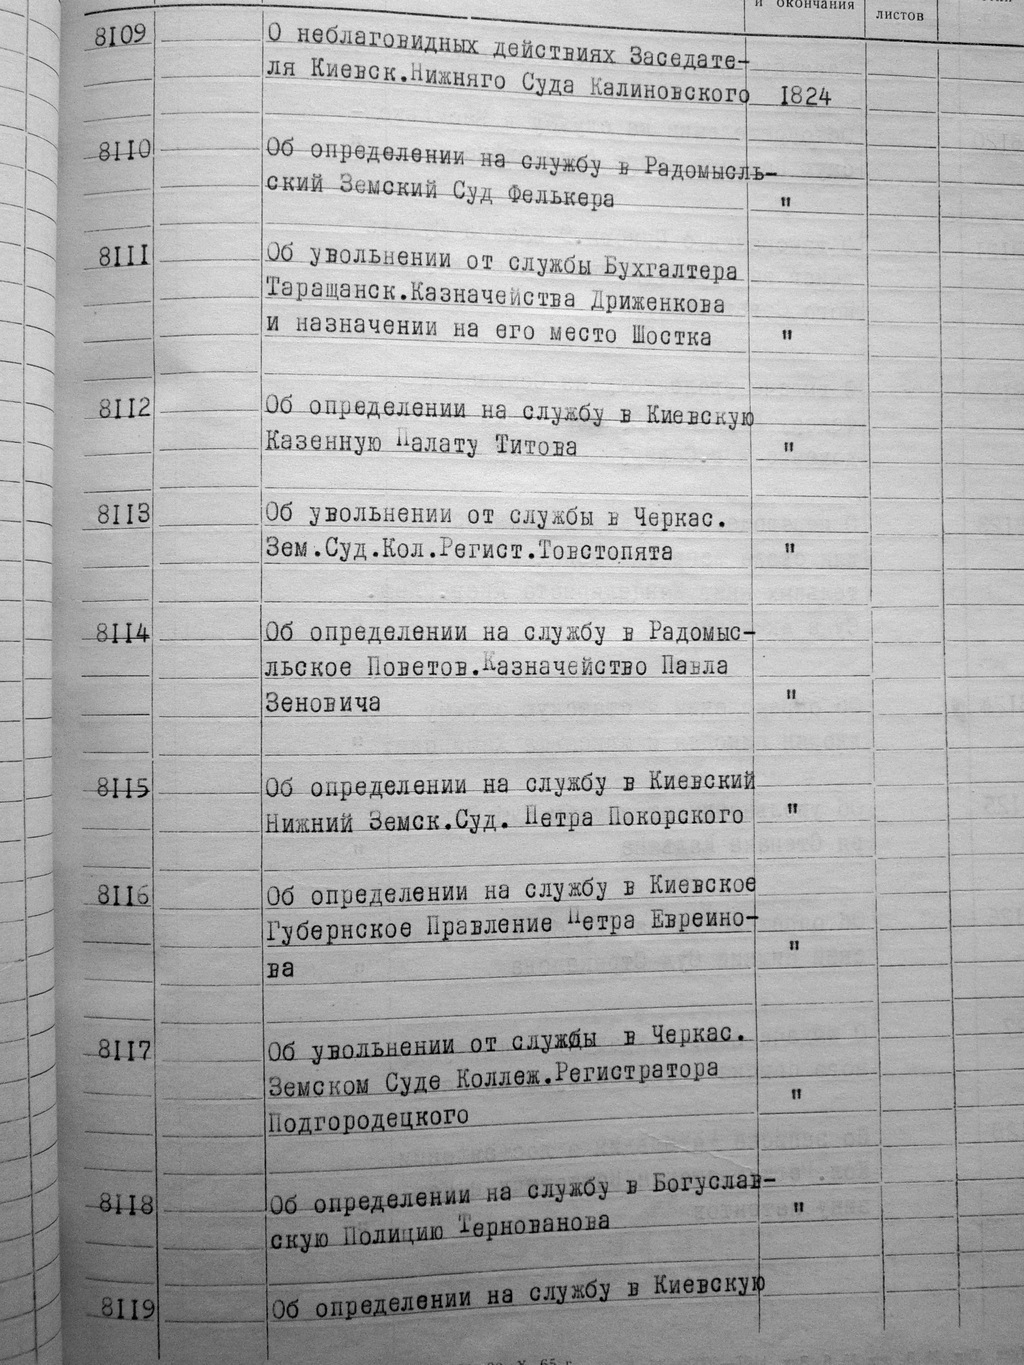 и окончания
листов
8109 О неблаговидных действиях Заседате-
ля Киевск.Нижняго Суда Калиновского 1824
8110 Об определении на службу в Радомысль-
ский Земский Суд Фелькера "
8111 Об увольнении от службы Бухгалтера
Таращанск.Казначейства Дриженкова
и назначении на его место Шостка "
8112 Об определении на службу в Киевскую
Казенную Палату Титова "
8113 Об увольнении от службы в Черкас.
Зем.Суд.Кол.Регист.Товстопята "
8114 Об определении на службу в Радомыс-
льское Поветов.Казначейство Павла
Зеновича "
8115 Об определении на службу в Киевский
Нижний Земск.Суд. Петра Покорского "
8116 Об определении на службу в Киевское
Губернское Правление Петра Евреино-
ва "
8117 Об увольнении от службы в Черкас.
Земском Суде Коллеж.Регистратора
Подгородецкого "
8118 Об определении на службу в Богуслав-
скую Полицию Тернованова "
8119 Об определении на службу в Киевскую